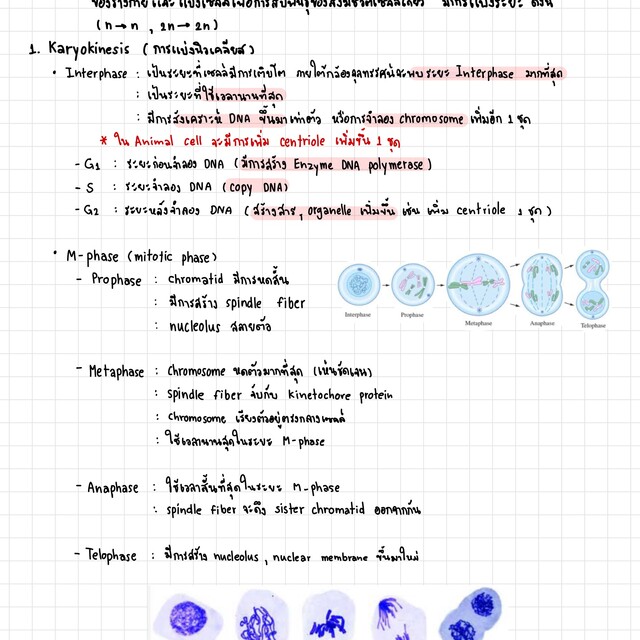 ของร่างกาย และ แบ่งเซลล์เพื่อการสืบพันธุ์ของสิ่งมีชีวิตเซลล์เดียว มีการแบ่งระยะ ดังนี้
(n→n , 2n→2n)
1. Karyokinesis (การแบ่งนิวเคลียส)
• Interphase : เป็นระยะที่เซลล์มีการเติบโต ภายใต้กล้องจุลทรรศน์จะพบระยะ Interphase มากที่สุด
: เป็นระยะที่ใช้เวลานานที่สุด
: มีการสังเคราะห์ DNA ขึ้นมาเท่าตัว หรือการจำลอง chromosome เพิ่มอีก 1 ชุด
* ใน Animal cell จะมีการเพิ่ม centriole เพิ่มขึ้น 1 ชุด
- G1 : ระยะก่อนจำลอง DNA (มีการสร้าง Enzyme DNA polymerase)
- S : ระยะจำลอง DNA (copy DNA)
- G2 : ระยะหลังจำลอง DNA (สร้างสาร, organelle เพิ่มขึ้น เช่น เพิ่ม centriole 1 ชุด)
• M-phase (mitotic phase)
- Prophase : chromatid มีการหดสั้น
: มีการสร้าง spindle fiber
: nucleolus สลายตัว
Interphase Prophase Metaphase Anaphase Telophase
- Metaphase : Chromosome หดตัวมากที่สุด (เห็นชัดเจน)
: spindle fiber จับกับ kinetochore protein
: chromosome เรียงตัวอยู่ตรงกลางเซลล์
: ใช้เวลานานสุดในระยะ M-phase
- Anaphase : ใช้เวลาสั้นที่สุดในระยะ M-phase
: spindle fiber จะดึง sister chromatid ออกจากกัน
- Telophase : มีการสร้าง nucleolus , nuclear membrane ขึ้นมาใหม่